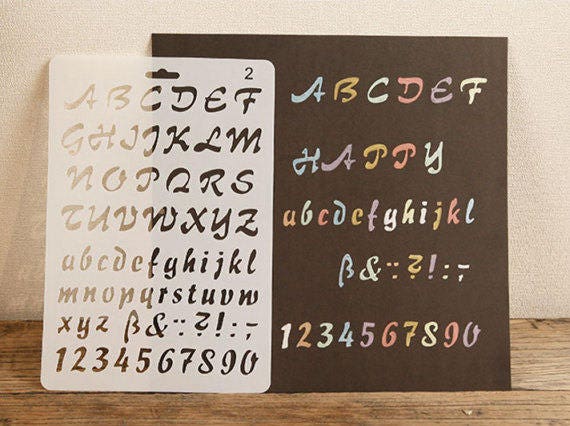 2
ABCDEF
GHIJKLM
NOPQRS
TUVWXYZ
abcdefghijkl
mnopqrstuvw
xyz ß&:;?!:;-
1234567890
ABCDEF
HAPPY
abcdefghijkl
ß&:;?!:;-
1234567890